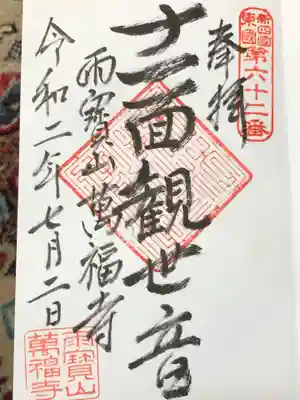 新四國
東國
第六十二番
奉拝
十一面観世音
雨寳山萬福寺
令和二年七月二日
雨寳山
萬福寺